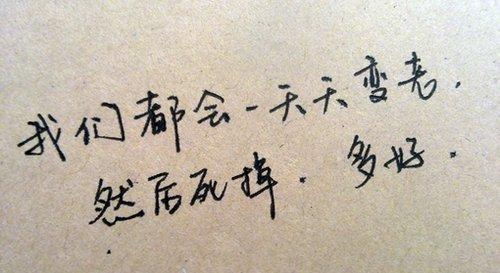 我们都会一天天变老.
然后死掉.多好.